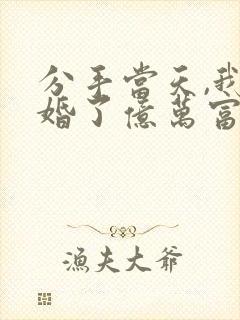 分手當天,我
婚了億萬富
漁夫大爺